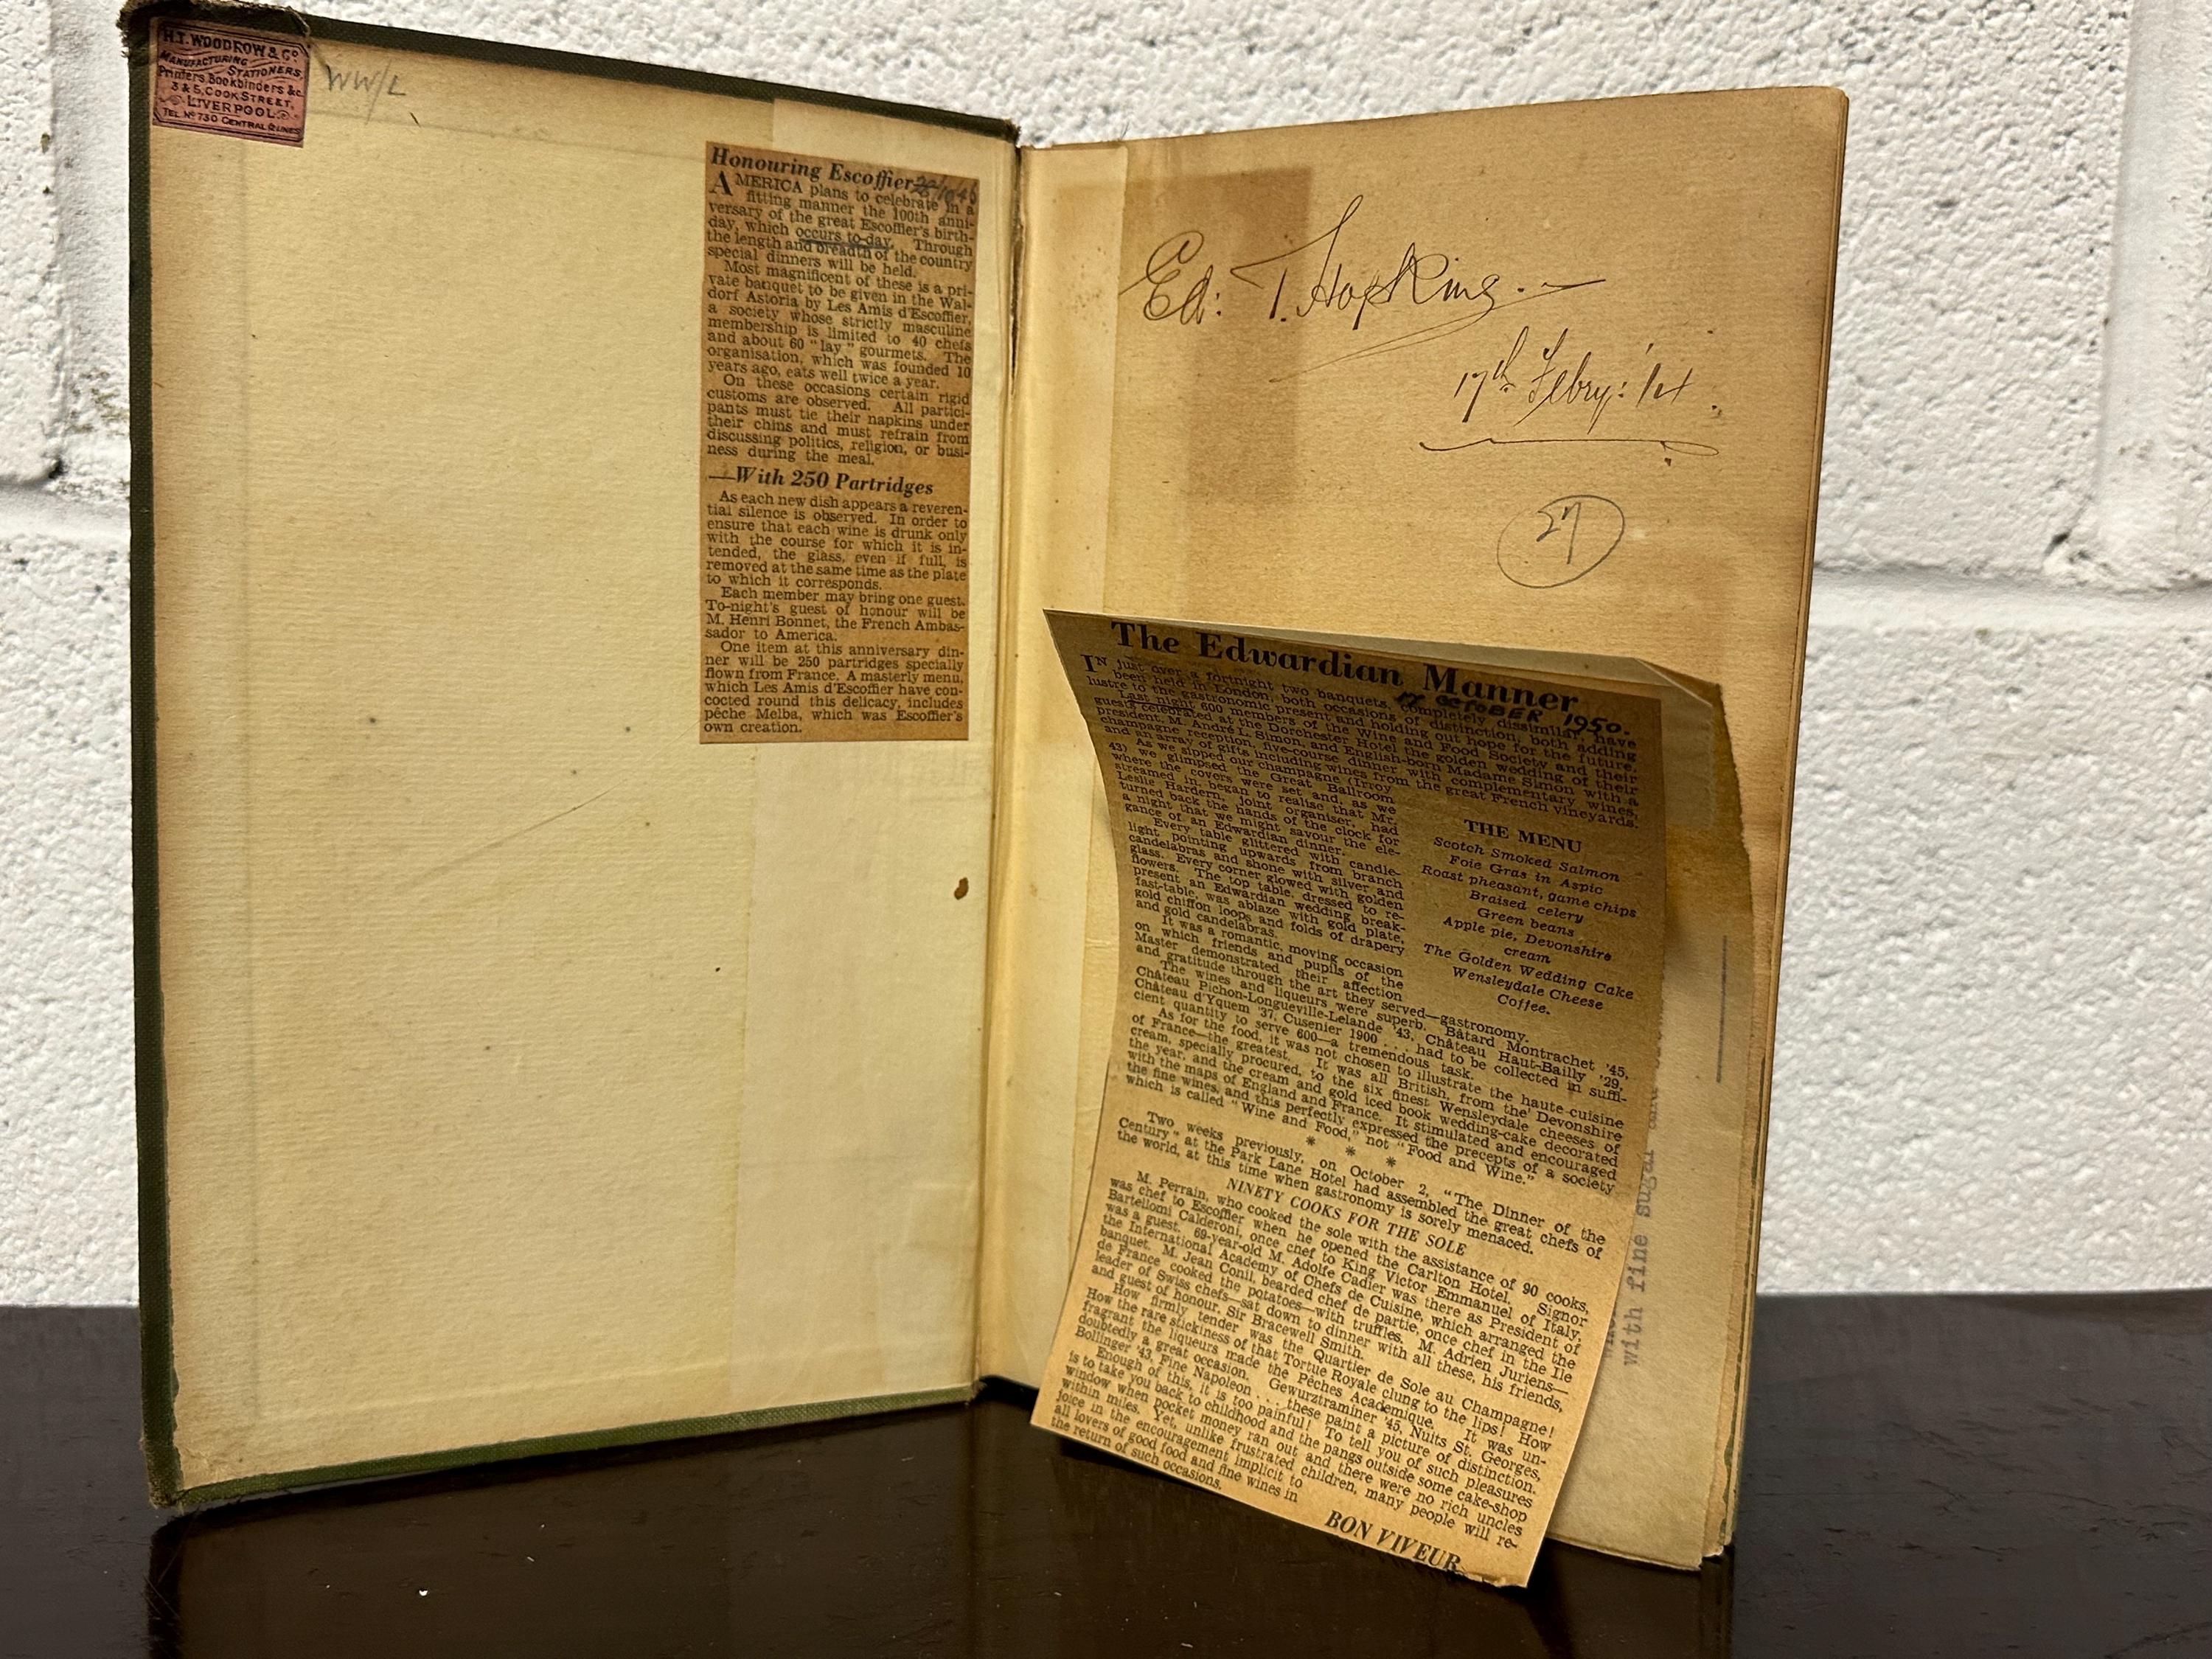 H.T. WOODROW & Co
MANUFACTURING
STATIONERS,
Printers Bookbinders &c.
3 & 5, COOK STREET,
LIVERPOOL.
TEL. No 730 CENTRAL
WW/L
Honouring Escoffier
AMERICA plans to celebrate in a
fitting manner the 100th anni-
versary of the great Escoffier's birth-
day, which occurs to-day. Through
the length and breadth of the country
special dinners will be held.
Most magnificent of these is a pri-
vate banquet to be given in the Wal-
dorf Astoria by Les Amis d'Escoffier,
a society whose strictly masculine
membership is limited to 40 chefs
and about 60 "lay" gourmets. The
organisation, which was founded 10
years ago, eats well twice a year.
On these occasions certain rigid
customs are observed. All partici-
pants must tie their napkins under
their chins and must refrain from
discussing politics, religion, or busi-
ness during the meal.
—With 250 Partridges
As each new dish appears a reveren-
tial silence is observed. In order to
ensure that each wine is drunk only
with the course for which it is in-
tended, the glass, even if full, is
removed at the same time as the plate
to which it corresponds.
Each member may bring one guest.
To-night's guest of honour will be
M. Henri Bonnet, the French Ambas-
sador to America.
One item at this anniversary din-
ner will be 250 partridges specially
flown from France. A masterly menu,
which Les Amis d'Escoffier have con-
cocted round this delicacy, includes
pêche Melba, which was Escoffier's
own creation.
Ed: T. Hopkins.
17th Febry: '14.
27
The Edwardian Manner
17 OCTOBER 1950.
IN just over a fortnight two banquets, completely dissimilar, have
been held in London, both occasions of distinction, both adding
lustre to the gastronomic present and holding out hope for the future.
Last night 600 members of the Wine and Food Society and their
guests celebrated at the Dorchester Hotel the golden wedding of their
president, M. André L. Simon, and English-born Madame Simon with a
champagne reception, five-course dinner with complementary wines,
and an array of gifts including wines from the great French vineyards.
As we sipped our champagne (Irroy
43) we glimpsed the Great Ballroom
where the covers were set and, as we
streamed in, began to realise that Mr.
Leslie Hardern, joint organiser, had
turned back the hands of the clock for
a night that we might savour the ele-
gance of an Edwardian dinner.
Every table glittered with candle-
light pointing upwards from branch
candelabras and shone with silver and
glass. Every corner glowed with golden
flowers. The top table, dressed to re-
present an Edwardian wedding break-
fast-table, was ablaze with gold plate,
gold chiffon loops and folds of drapery
and gold candelabras.
It was a romantic, moving occasion
on which friends and pupils of the
Master demonstrated their affection
and gratitude through the art they served—gastronomy.
THE MENU
Scotch Smoked Salmon
Foie Gras in Aspic
Roast pheasant, game chips
Braised celery
Green beans
Apple pie, Devonshire
cream
The Golden Wedding Cake
Wensleydale Cheese
Coffee.
The wines and liqueurs were superb. Bâtard Montrachet '45,
Château Pichon-Longueville-Lelande '43, Château Haut-Bailly '29,
Château d'Yquem '37, Cusenier 1900 . . . had to be collected in suffi-
cient quantity to serve 600—a tremendous task.
As for the food, it was not chosen to illustrate the haute-cuisine
of France—the greatest. It was all British, from the Devonshire
cream, specially procured, to the six finest Wensleydale cheeses of
the year, and the cream and gold iced book wedding-cake decorated
with the maps of England and France. It stimulated and encouraged
the fine wines, and this perfectly expressed the precepts of a society
which is called "Wine and Food," not "Food and Wine."
* * *
Two weeks previously, on October 2, "The Dinner of the
Century" at the Park Lane Hotel had assembled the great chefs of
the world, at this time when gastronomy is sorely menaced.
NINETY COOKS FOR THE SOLE
M. Perrain, who cooked the sole with the assistance of 90 cooks,
was chef to Escoffier when he opened the Carlton Hotel. Signor
Bartellomi Calderoni, once chef to King Victor Emmanuel of Italy,
was a guest. 69-year-old M. Adolfe Cadier was there as President of
the International Academy of Chefs de Cuisine, which arranged the
banquet. M. Jean Conil, bearded chef de partie, once chef in the Ile
de France, cooked the potatoes—with truffles. M. Adrien Juriens—
leader of Swiss chefs—sat down to dinner with all these, his friends,
and guest of honour, Sir Bracewell Smith.
How firmly tender was the Quartier de Sole au Champagne!
How the rare stickiness of that Tortue Royale clung to the lips! How
fragrant the liqueurs made the Pêches Academique. It was un-
doubtedly a great occasion. Gewurztraminer '45, Nuits St. Georges,
Bollinger '43, Fine Napoleon . . . these paint a picture of distinction.
Enough of this, it is too painful! To tell you of such pleasures
is to take you back to childhood and the pangs outside some cake-shop
window when pocket money ran out and there were no rich uncles
within miles. Yet, unlike frustrated children, many people will re-
joice in the encouragement implicit to
all lovers of good food and fine wines in
the return of such occasions.
BON VIVEUR
with fine sugar and